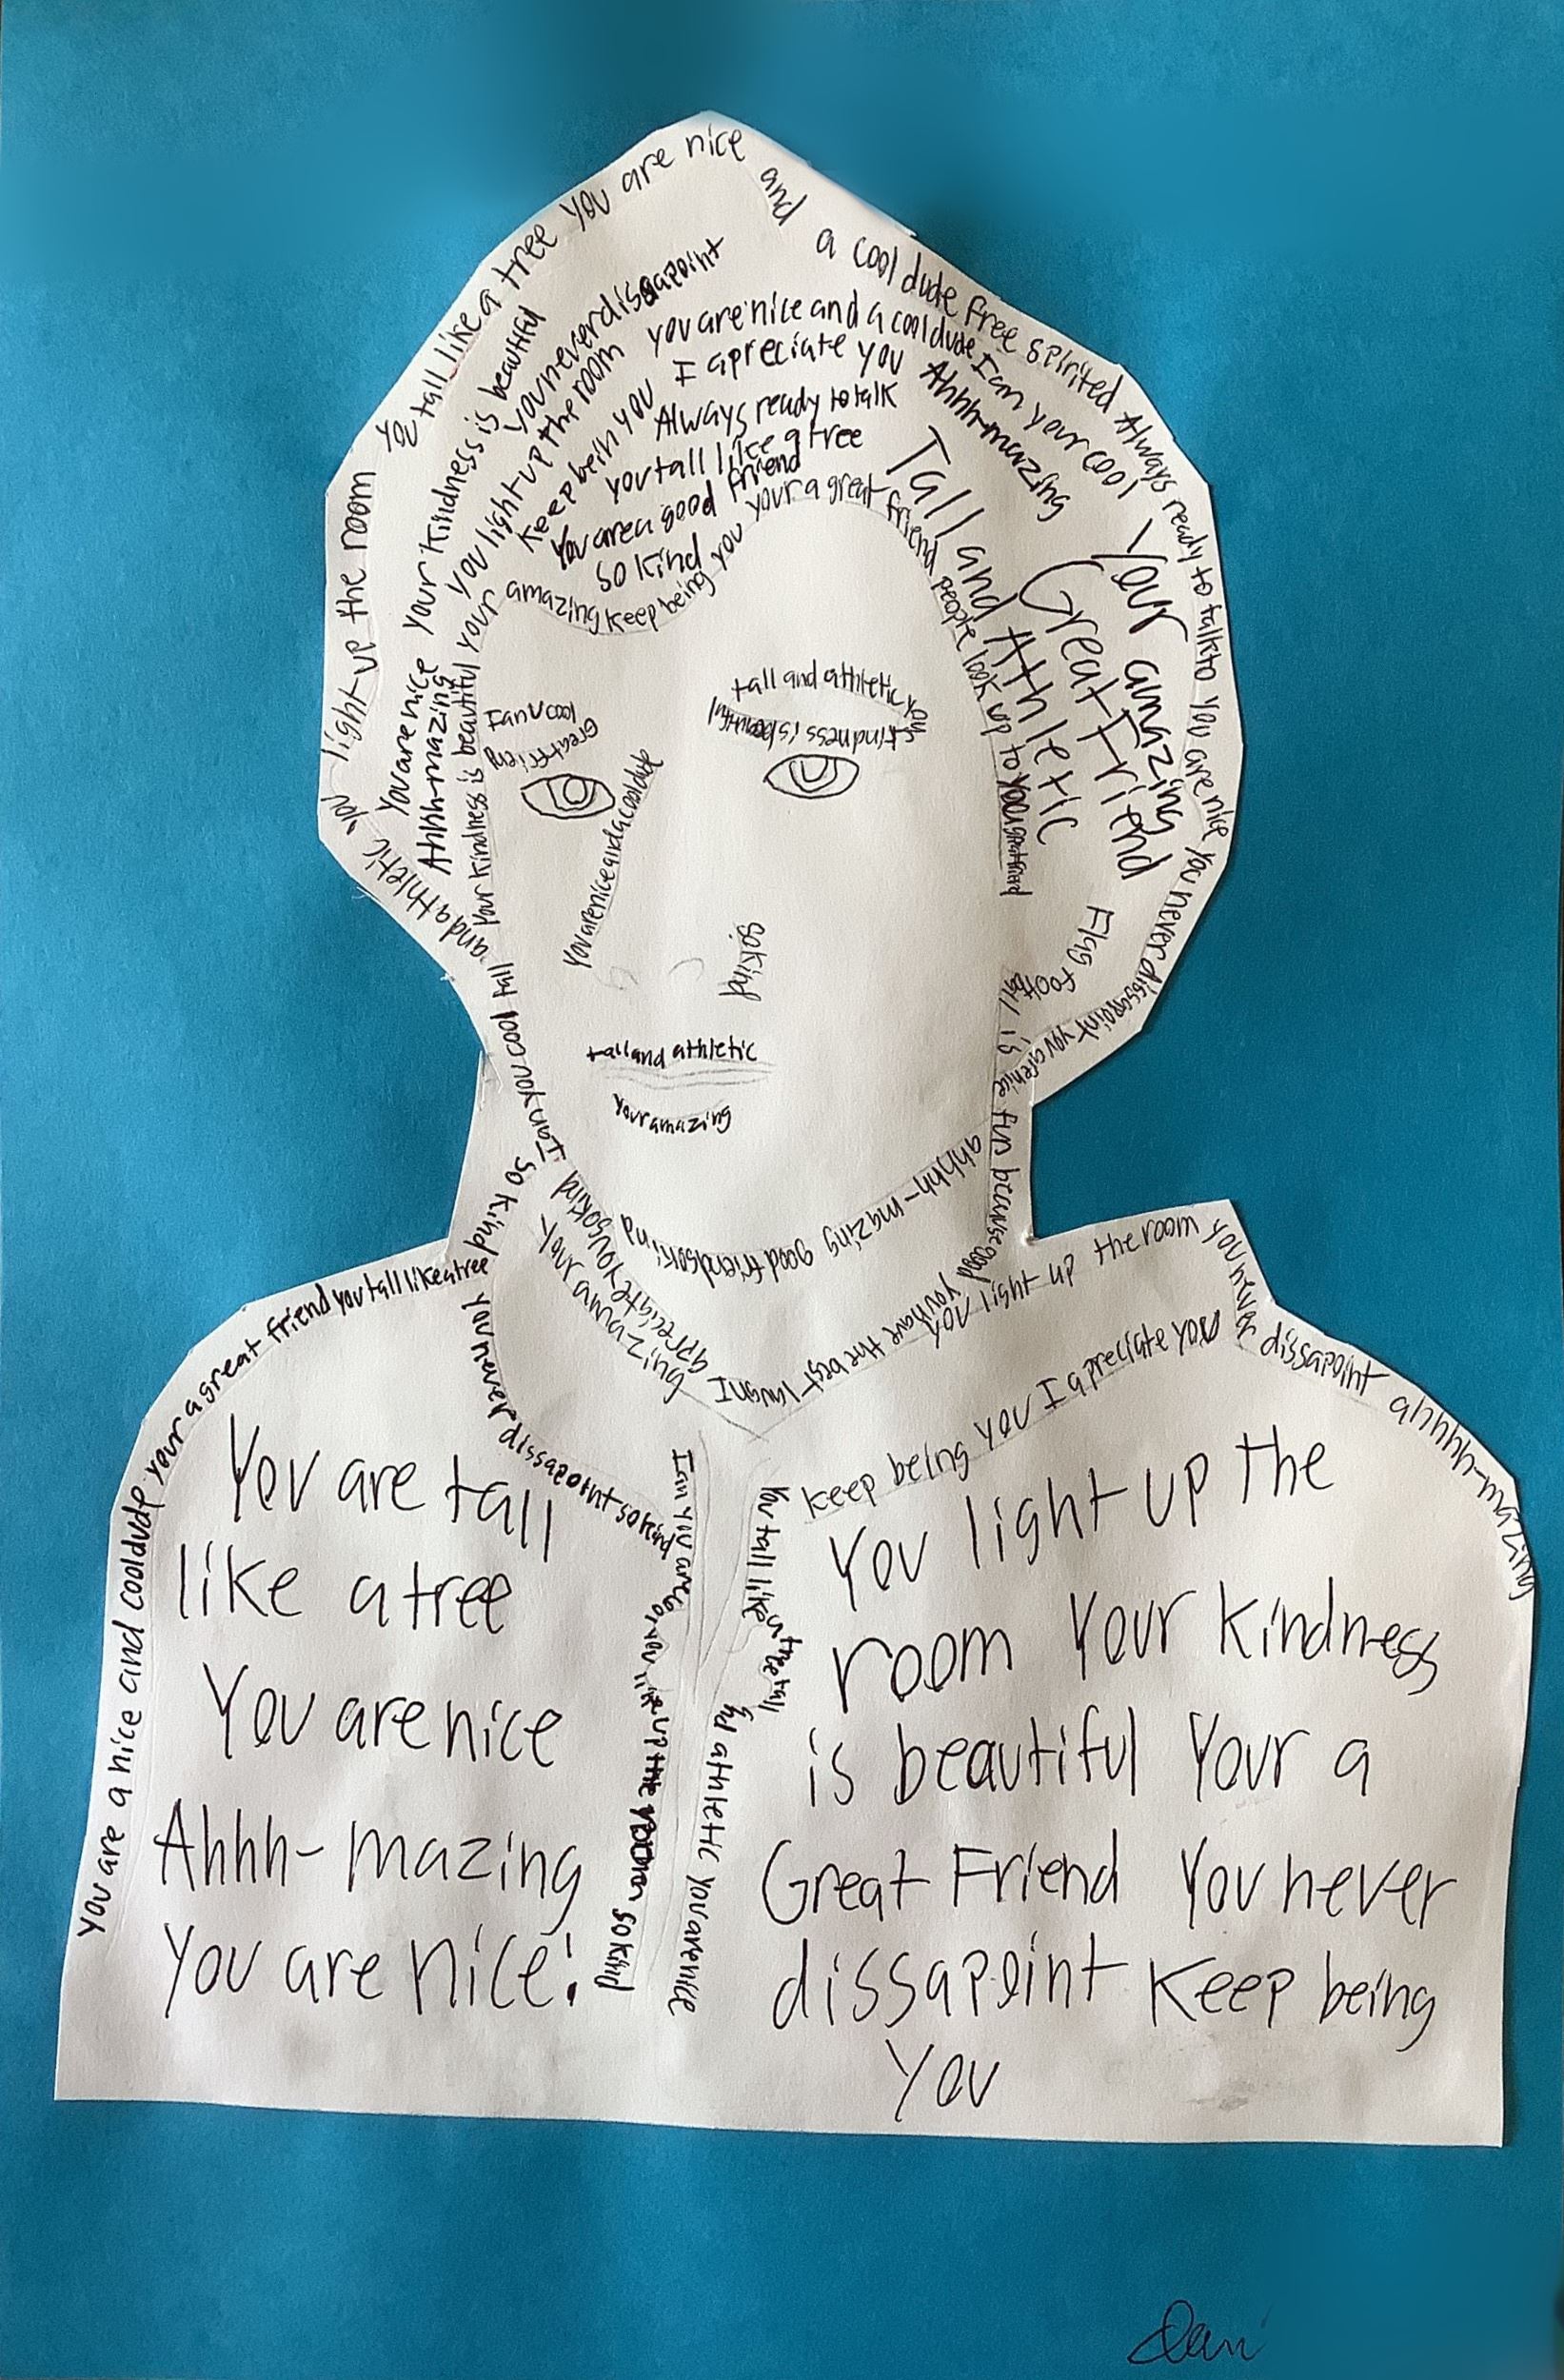 you light up the room
tall like a tree you are nice
and
a cool dude free spirited Always ready to talk to you are nice you never dissapoint you are nice
you never disapoint
your kindness is beautiful
you light up the room
keep bein you
you are nice and a cool dude I an your cool
I apreciate you
Ahhh-mazing
Always ready to talk
you tall like a tree
You are a good friend
so kind
amazing keep being you your a great friend people look up to
Tall and Athletic
Great Friend
Your amazing
You are nice
Ahhh-mazing
your kindness is beautiful your
and athletic
Flag football is fun because good
tall and athletic your
kindness is beautiful
Ian v cool
Great frieng
You are nice and a cool dude
so kind
tall and athletic
Your amazing
Ian you cool tall and
ahhhh-mazing good friend so kind
so kind
I apreciate you so kind
you have the best laugh I
Your amazing
You are a nice and cool dude your a great friend you tall like a tree
so kind
you never dissapoint so kind
you light up the room
you never dissapoint ahhhh-mazing
keep being you I apreciate you
Ian you are
so kind
You tall like a tree tall
athletic you are nice
You are tall
like a tree
You are nice
Ahhh-mazing
You are nice!
You light up the
room Your kindness
is beautiful Your a
Great Friend You never
dissapoint Keep being
You